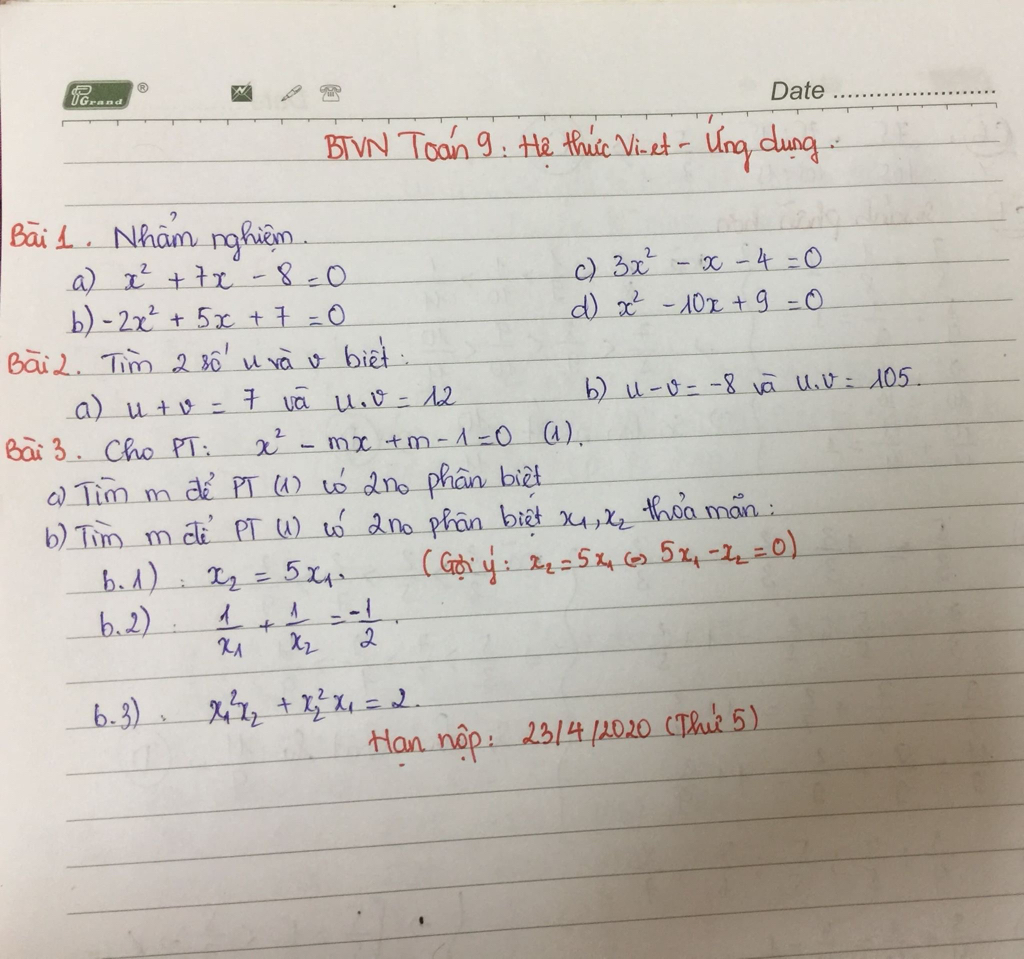 PGrand ® Date ........................
BTVN Toán 9: Hệ thức Vi-et - Ứng dụng.
Bài 1. Nhẩm nghiệm.
a) x² + 7x - 8 = 0 c) 3x² - x - 4 = 0
b) -2x² + 5x + 7 = 0 d) x² - 10x + 9 = 0
Bài 2. Tìm 2 số u và v biết:
a) u + v = 7 và u.v = 12 b) u - v = -8 và u.v = 105.
Bài 3. Cho PT: x² - mx + m - 1 = 0 (1).
a) Tìm m để PT (1) có 2 no phân biệt
b) Tìm m để PT (1) có 2 no phân biệt x₁, x₂ thỏa mãn:
b.1) : x₂ = 5x₁. (Gợi ý: x₂ = 5x₁ ⇔ 5x₁ - x₂ = 0)
b.2) : 1/x₁ + 1/x₂ = -1/2.
b.3) : x₁²x₂ + x₂²x₁ = 2.
Hạn nộp: 23/4/2020 (Thứ 5)